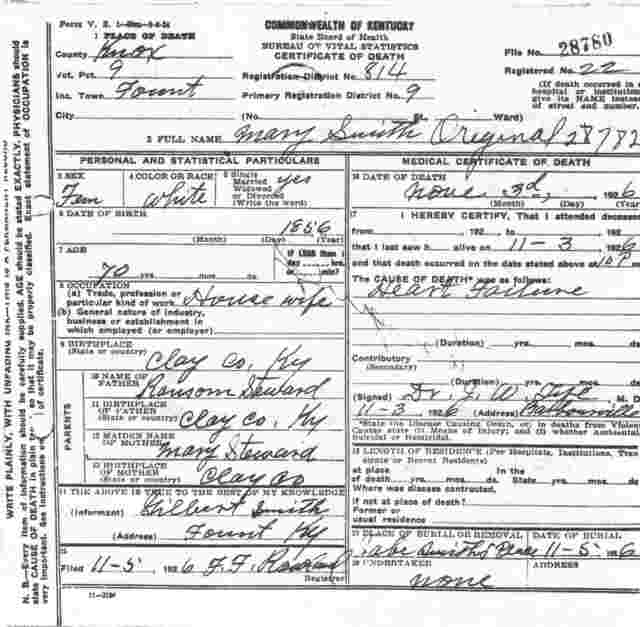 COMMONWEALTH OF KENTUCKY
State Board of Health
BUREAU OF VITAL STATISTICS
CERTIFICATE OF DEATH
1 PLACE OF DEATH
County Knox
Vot. Pct. 9
Inc. Town Fount
City
(No. St. Ward)
Registration District No. 814
Primary Registration District No. 9
File No. 28780
Registered No. 22
(If death occurred in a
hospital or institution
give its NAME instead
of street and number.
2 FULL NAME Mary Smith Original 28782
PERSONAL AND STATISTICAL PARTICULARS
3 SEX
Fem
4 COLOR OR RACE
White
5 Single
Married
Widowed
or Divorced
(Write the word)
yes
6 DATE OF BIRTH
1856
(Month) (Day) (Year)
7 AGE
70 yrs. mos. ds.
If LESS than 1
day hrs.
or min?
8 OCCUPATION
(a) Trade, profession or
particular kind of work House wife
(b) General nature of industry,
business or establishment in
which employed (or employer)
9 BIRTHPLACE
(State or country)
Clay Co, Ky
PARENTS
10 NAME OF
FATHER
Ransom Steward
11 BIRTHPLACE
OF FATHER
(State or country)
Clay Co, Ky
12 MAIDEN NAME
OF MOTHER
Mary Steward
13 BIRTHPLACE
OF MOTHER
(State or country)
Clay Co
14 THE ABOVE IS TRUE TO THE BEST OF MY KNOWLEDGE
(Informant) Gilbert Smith
(Address) Fount Ky
15
Filed 11-5, 1926
Registrar
MEDICAL CERTIFICATE OF DEATH
16 DATE OF DEATH
3d, 1926
(Month) (Day) (Year)
17 I HEREBY CERTIFY, That I attended deceased
from 192 to 192
that I last saw h alive on 11-3 1926
and that death occurred on the date stated above at 10 P m.
The CAUSE OF DEATH* was as follows:
Heart Failure
(Duration) yrs. mos. d
Contributory
(Secondary)
(Duration) yrs. mos. d
(Signed) Dr. M. D.
11-3 1926 (Address) Barbourville
*State the Disease Causing Death, or, in deaths from Violent
Causes state (1) Means of Injury; and (2) whether Accidental,
Suicidal or Homicidal.
18 LENGTH OF RESIDENCE (For Hospitals, Institutions, Tran
sients or Recent Residents)
At place In the
of death yrs. mos. ds. State yrs. mos. ds.
Where was disease contracted,
if not at place of death?
Former or
usual residence
19 PLACE OF BURIAL OR REMOVAL
Place
DATE OF BURIAL
11-5 1926
20 UNDERTAKER
none
ADDRESS
WRITE PLAINLY, WITH UNFADING INK—THIS IS A PERMANENT RECORD
N. B.—Every item of information should be carefully supplied. AGE should be stated EXACTLY. PHYSICIANS should
state CAUSE OF DEATH in plain so that it may be properly classified. Exact statement of OCCUPATION is
very important. See instructions of certificate.